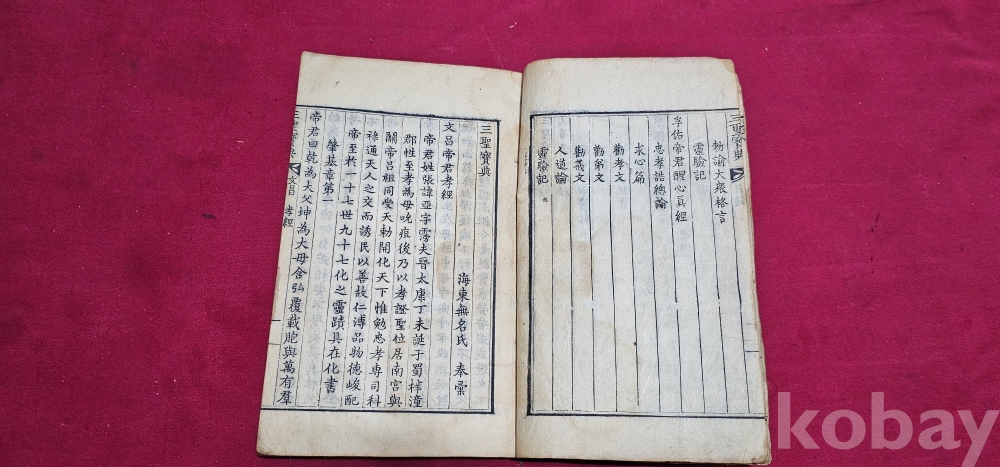 三聖寶典
物諭大衆格言
靈驗記
孚佑帝君醒心真經
忠孝誥總論
求心篇
勸孝文
勸弟文
勸義文
人道論
靈驗記
三聖寶典
海東無名氏 奉彙
文昌帝君孝經
帝君姓張諱亞字霶夫晉太康丁未誕于蜀梓潼
郡性至孝為母吮疽後乃以孝證聖位居南宮與
關帝呂祖同受天勅開化天下惟勉忠孝専司科
祿通天人之交而誘民以善故仁溥品物德峻配
帝至於一十七世九十七化之靈蹟具在化書
肇基章第一
帝君曰乾為大父坤為大母含弘覆載胞與萬有羣
三聖寶典 文昌 孝經 一
kobay